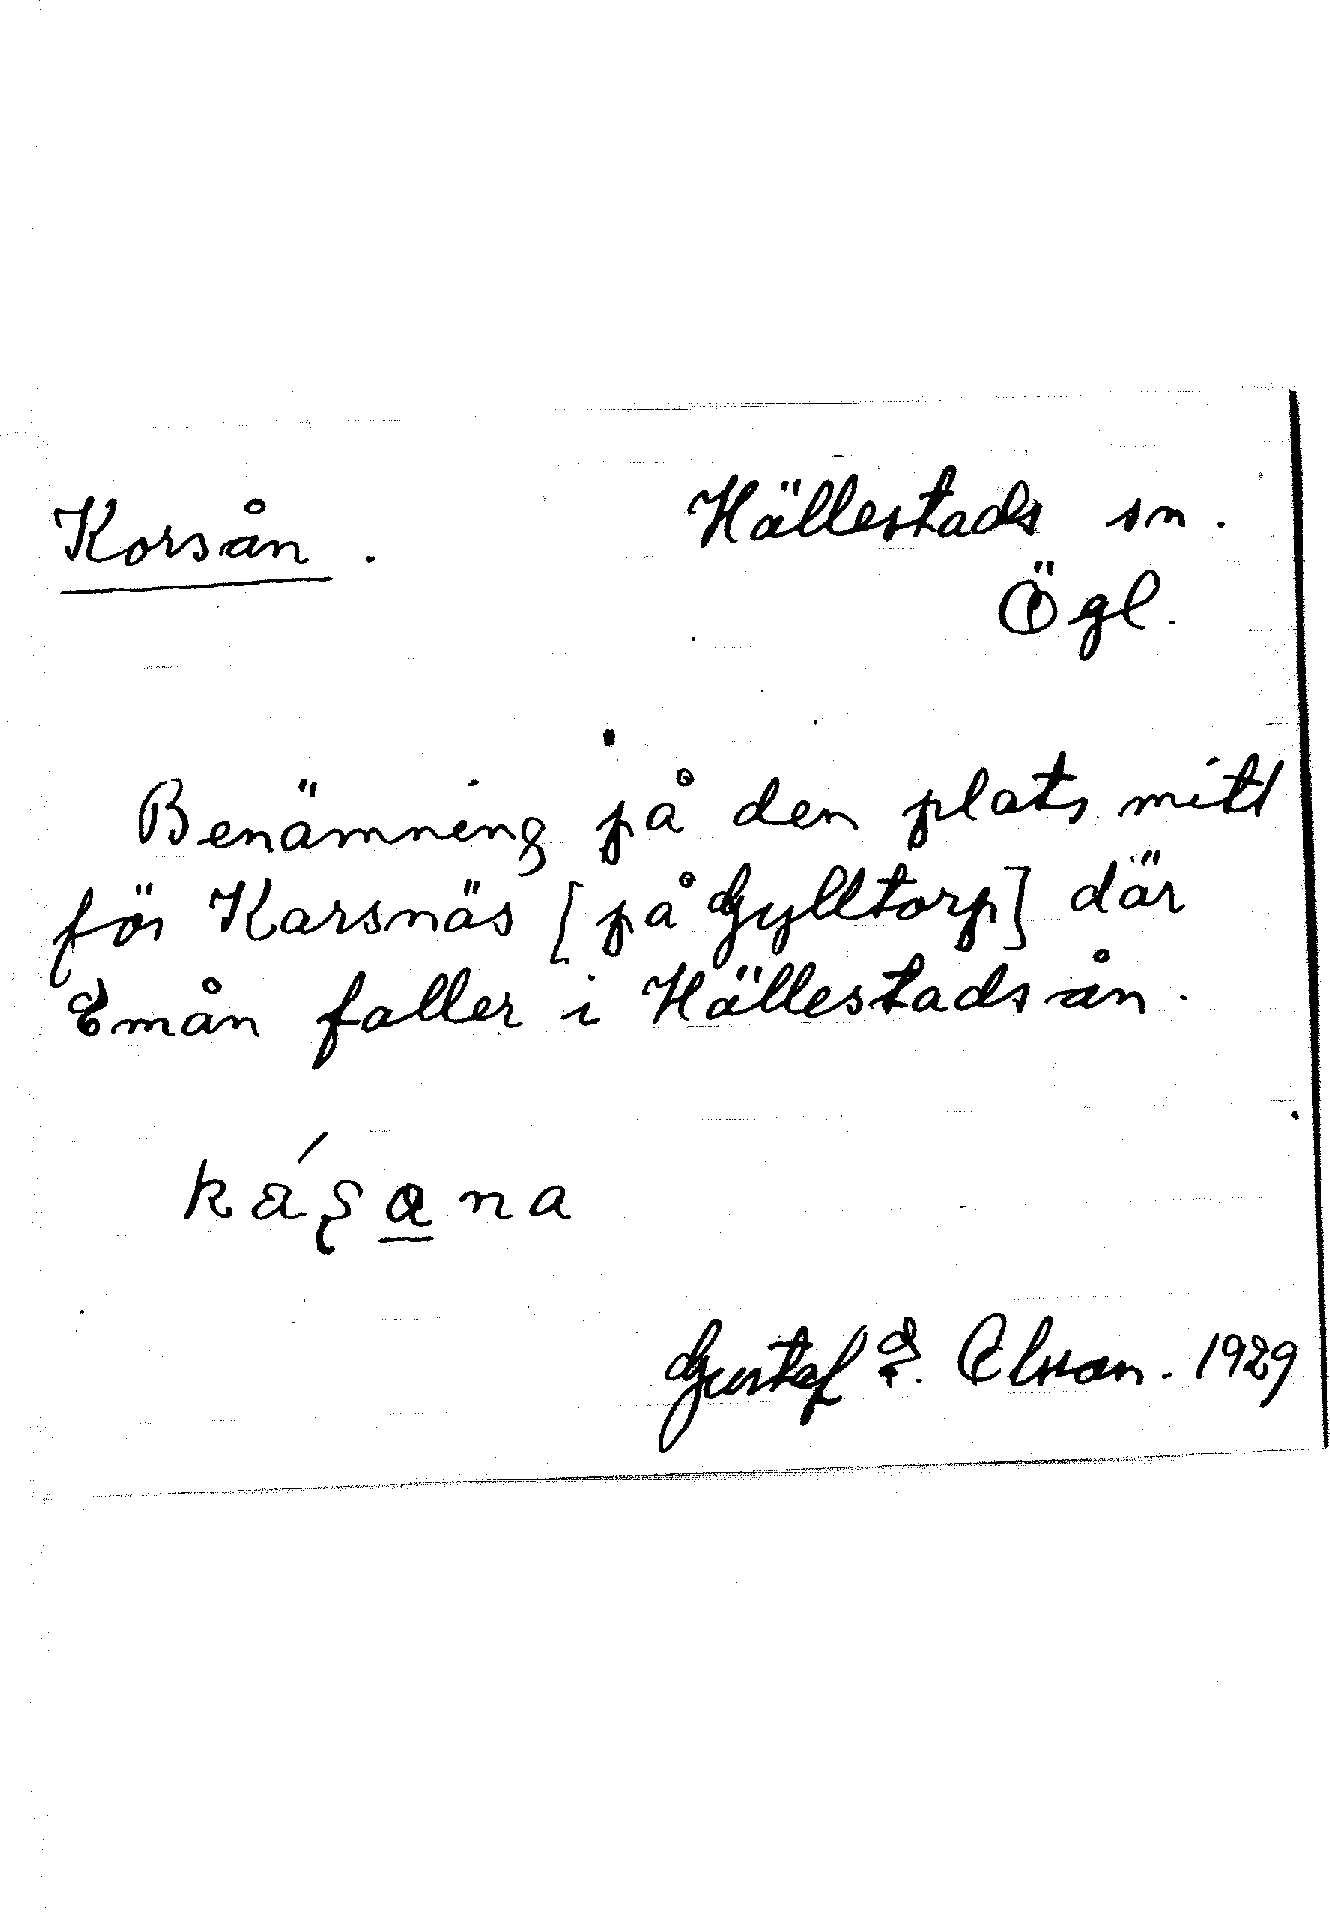 Korsån.
Hällestads sn.
Ögl.
Benämning på den plats mitt
för Karsnäs [på Gylltorp] där
Emån faller i Hällestadsån.
Gustaf E. Olsson. 1929